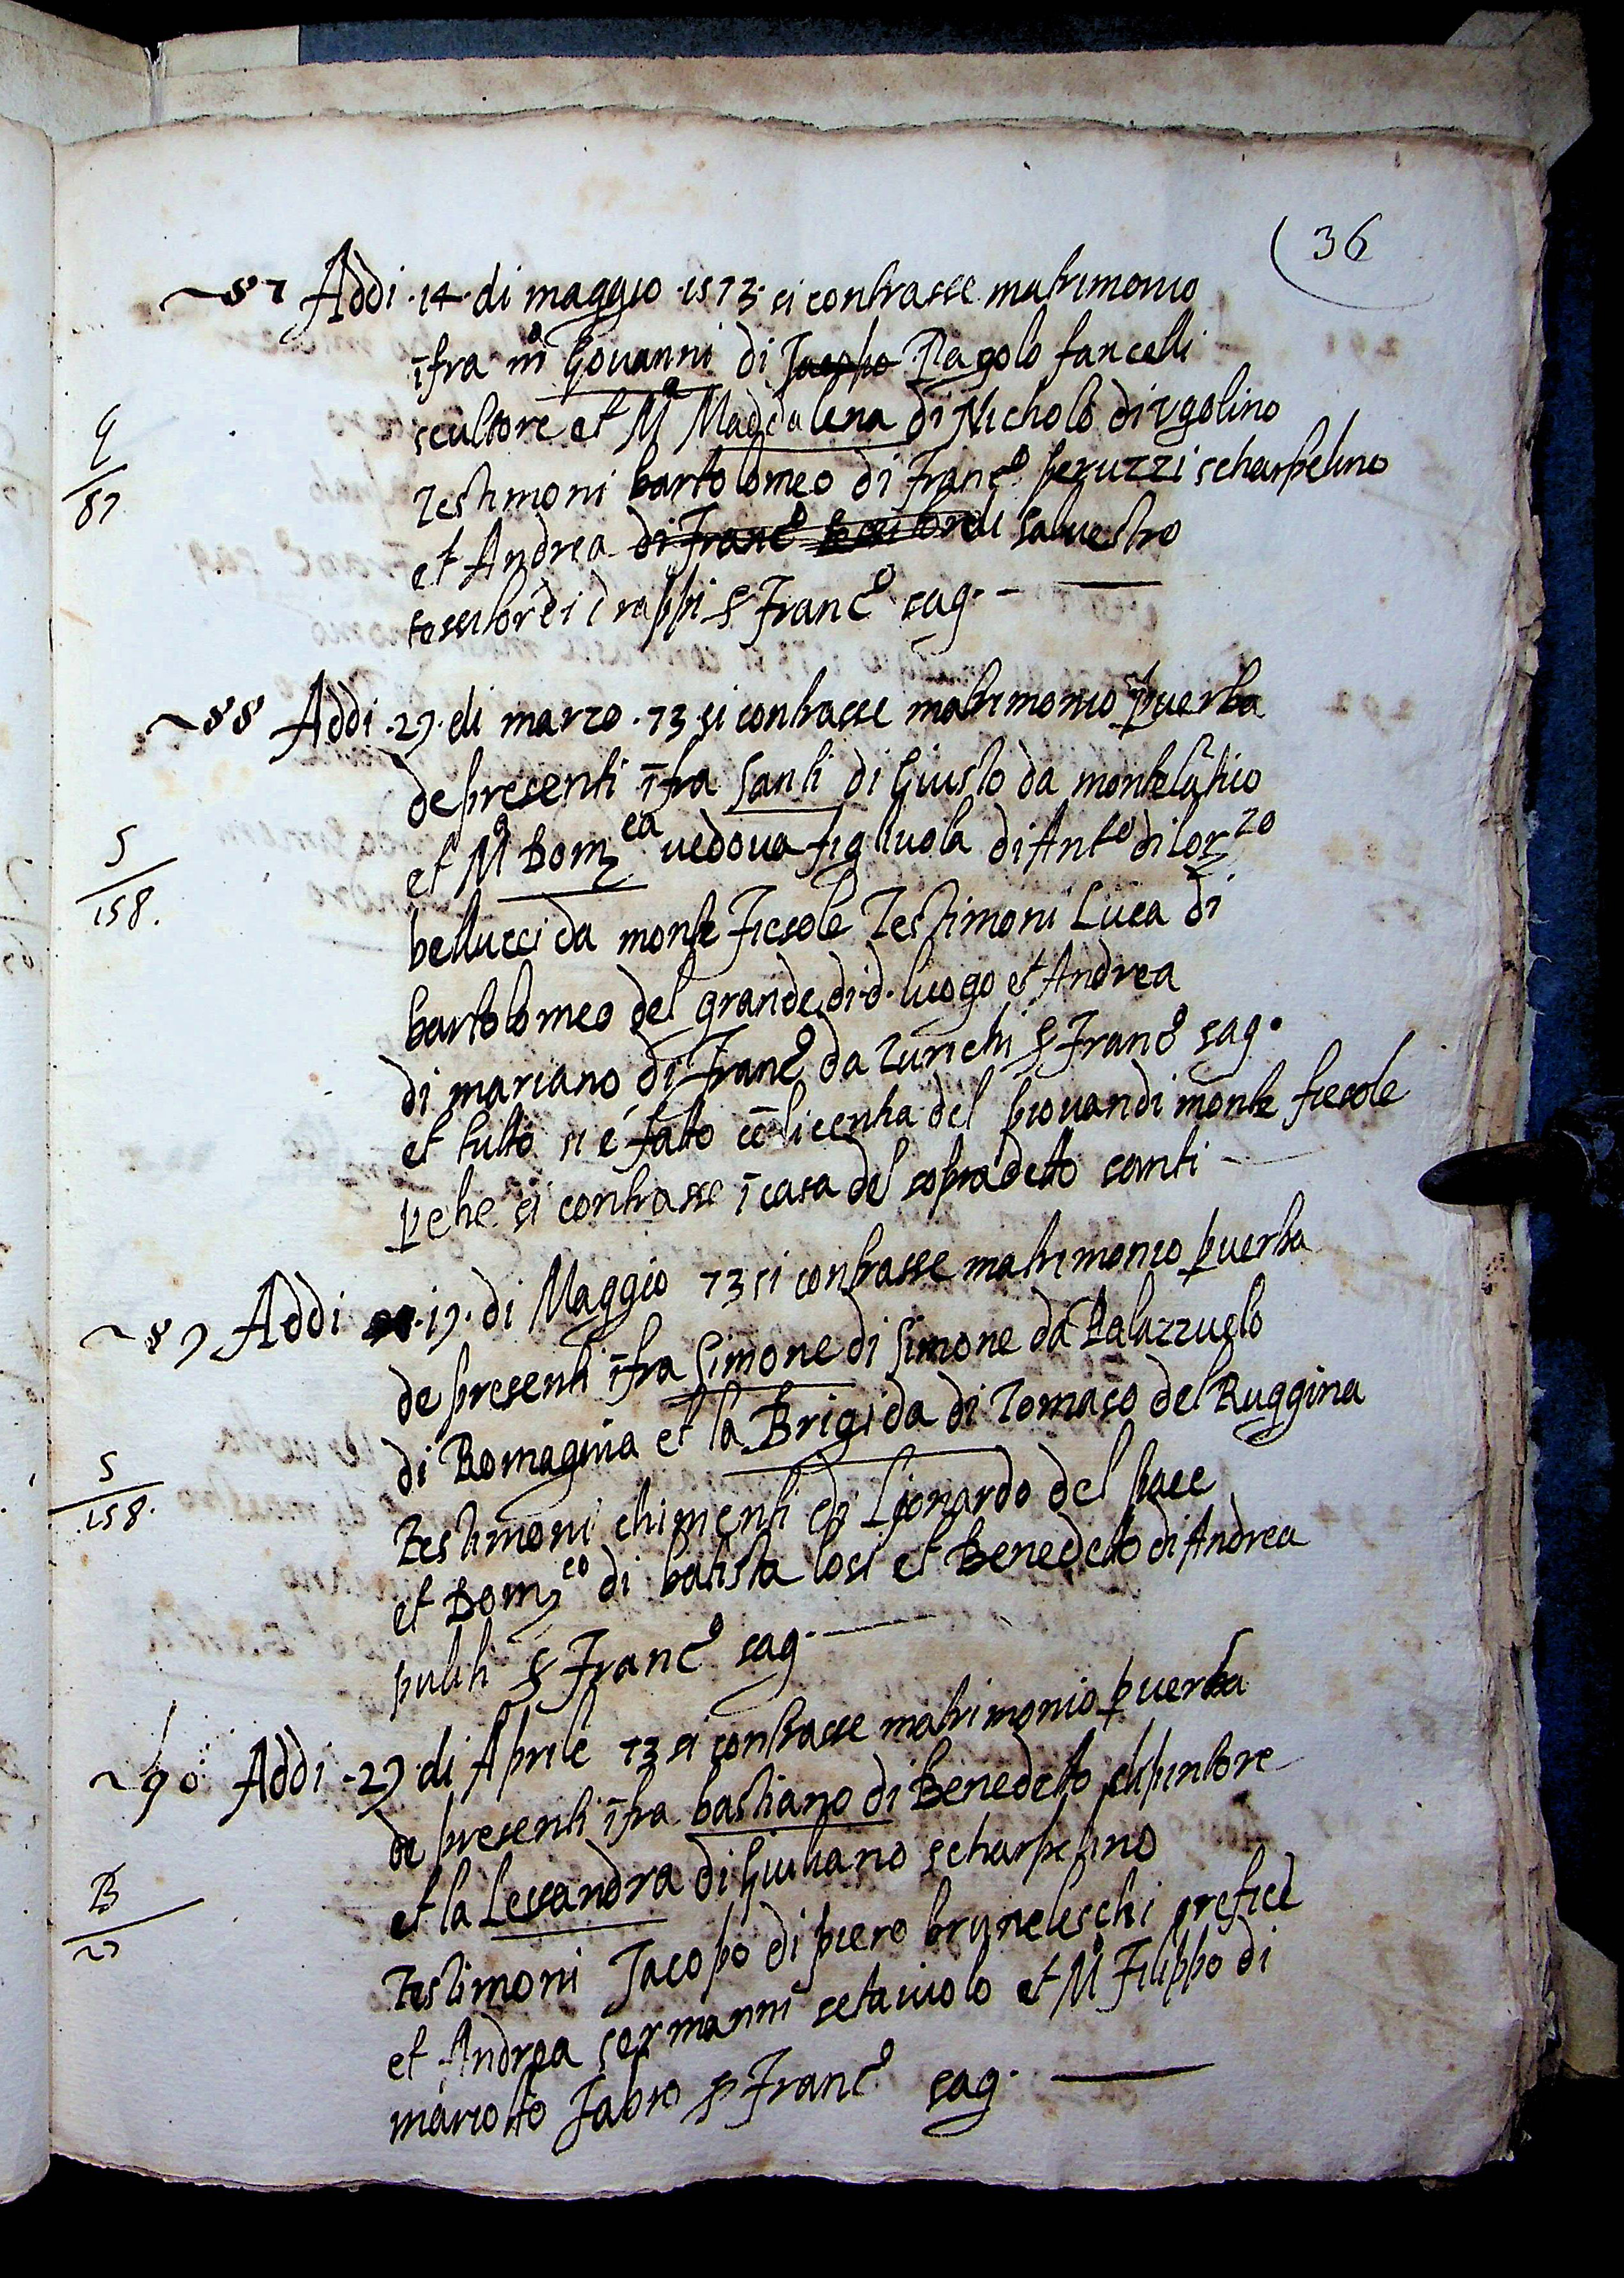 36
87 Addi .14. di maggio .1573. si contrasse matrimonio
ĩfra mº Giovanni di Jacopo Pagolo fancelli
G
87
scultore et Mª Maddalena di Nicholo di ugolino
Testimoni bartolomeo di francº peruzzi scharpelino
et Andrea di Francº tessitore di salvestro
tessitor di drappi S Francº sag.
88 Addi .29. di marzo .73 si contrasse matrimonio p verba
de presenti ĩfra Santi di Giusto da montelãtico
S
158.
et Mª Domca vedova figliuola di Antº di Lorzo
bellucci da monte Fiesole Testimoni Luca di
bartolomeo del grande di d. luogo et Andrea
di mariano di Francº da Turichi S Francº sag.
et tutto si é fatto cõ licentia del piovan di monte fiesole
pche si contrasse ĩ casa del sopradetto santi
89 Addi .19. di Maggio 73 si contrasse matrimonio p verba
de presenti ĩfra Simone di Simone da Palazzuolo
di Romagnia et la Brigida di Tomaso del Ruggina
S
158.
Testimoni chimenti di Lionardo del pace
et Domco di batista losi et Benedetto di Andrea
puliti S Francº sag.
90 Addi .29. di Aprile 73 si contrasse matrimonio p verba
de presenti ĩfra bastiano di Benedetto dipintore
B
29
et la Lessandra di Giuliano scharpelino
Testimoni Jacopo di piero bruneleschi orefice
et Andrea sermanni setaiuolo et Mº Filippo di
mariotto Fabro S Francº sag.